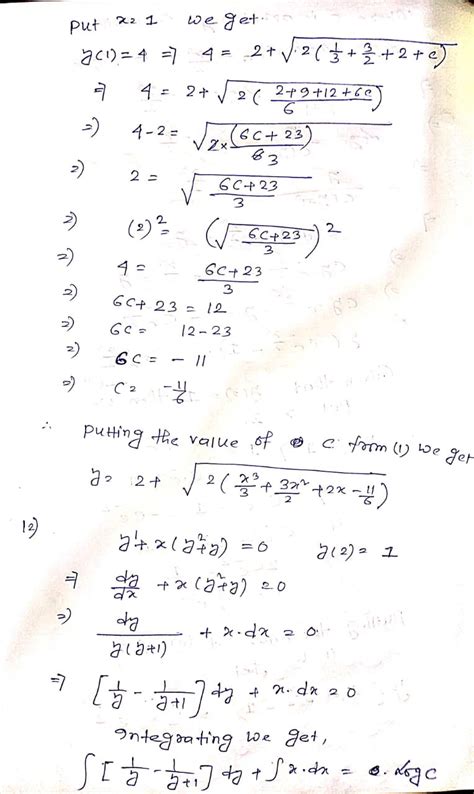 Put x = 1 we get.
y(1) = 4 ⇒ 4 = 2 + √(2(1/3 + 3/2 + 2 + c))
⇒ 4 = 2 + √(2(2+9+12+6c)/6)
⇒) 4-2 = √(2×(6c+23)/6 3)
⇒) 2 = √((6c+23)/3)
⇒) (2)² = (√((6c+23)/3))²
⇒) 4 = (6c+23)/3
⇒) 6c + 23 = 12
⇒) 6c = 12-23
⇒) 6c = -11
⇒) c = -11/6
∴ Putting the value of c from (1) we get
y = 2 + √(2(x³/3 + 3x²/2 + 2x - 11/6))
12)
y' + x(y²+y) = 0 y(2) = 1
⇒ dy/dx + x(y²+y) = 0
⇒) dy/(y(y+1)) + x·dx = 0
⇒ [1/y - 1/(y+1)] dy + x·dx = 0
Integrating we get,
∫[1/y - 1/(y+1)] dy + ∫x·dx = log c